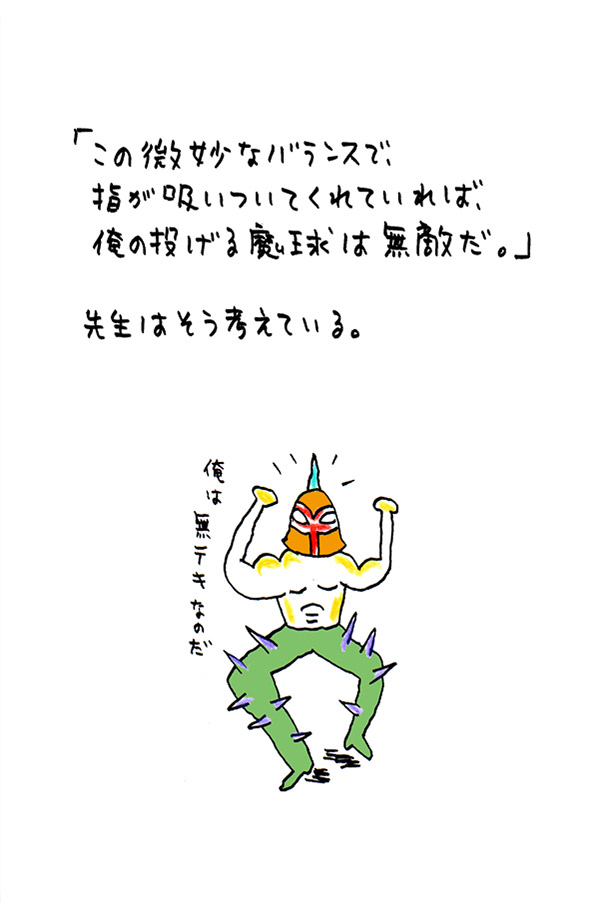 「この微妙なバランスで、
指が吸いついてくれていれば、
俺の投げる魔球は無敵だ。」
先生はそう考えている。
俺は無テキなのだ